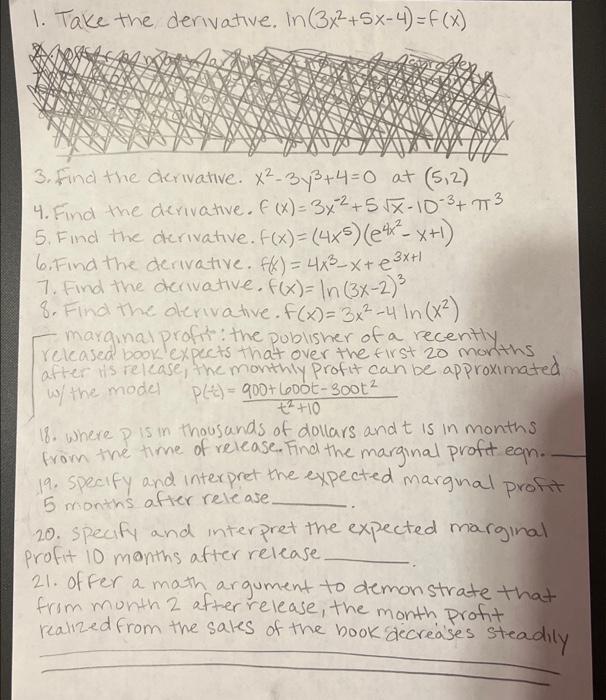 1. Take the derivative. ln(3x²+5x-4)=f(x)
3. Find the derivative. x²-3y³+4=0 at (5,2)
4. Find the derivative. f(x)=3x⁻²+5√x-10⁻³+π³
5. Find the derivative. f(x)=(4x⁵)(e^{4x²}-x+1)
6. Find the derivative. f(x)=4x³-x+e^{3x+1}
7. Find the derivative. f(x)=ln(3x-2)³
8. Find the derivative. f(x)=3x²-4 ln(x²)
marginal profit: the publisher of a recently
released book expects that over the first 20 months
after its release, the monthly profit can be approximated
w/ the model P(t)= (900+600t-300t²)/(t²+10)
18. where P is in thousands of dollars and t is in months
from the time of release. Find the marginal profit eqn. ___
19. specify and interpret the expected marginal profit
5 months after release ______.
20. specify and interpret the expected marginal
profit 10 months after release ______.
21. offer a math argument to demonstrate that
from month 2 after release, the month profit
realized from the sales of the book decreases steadily